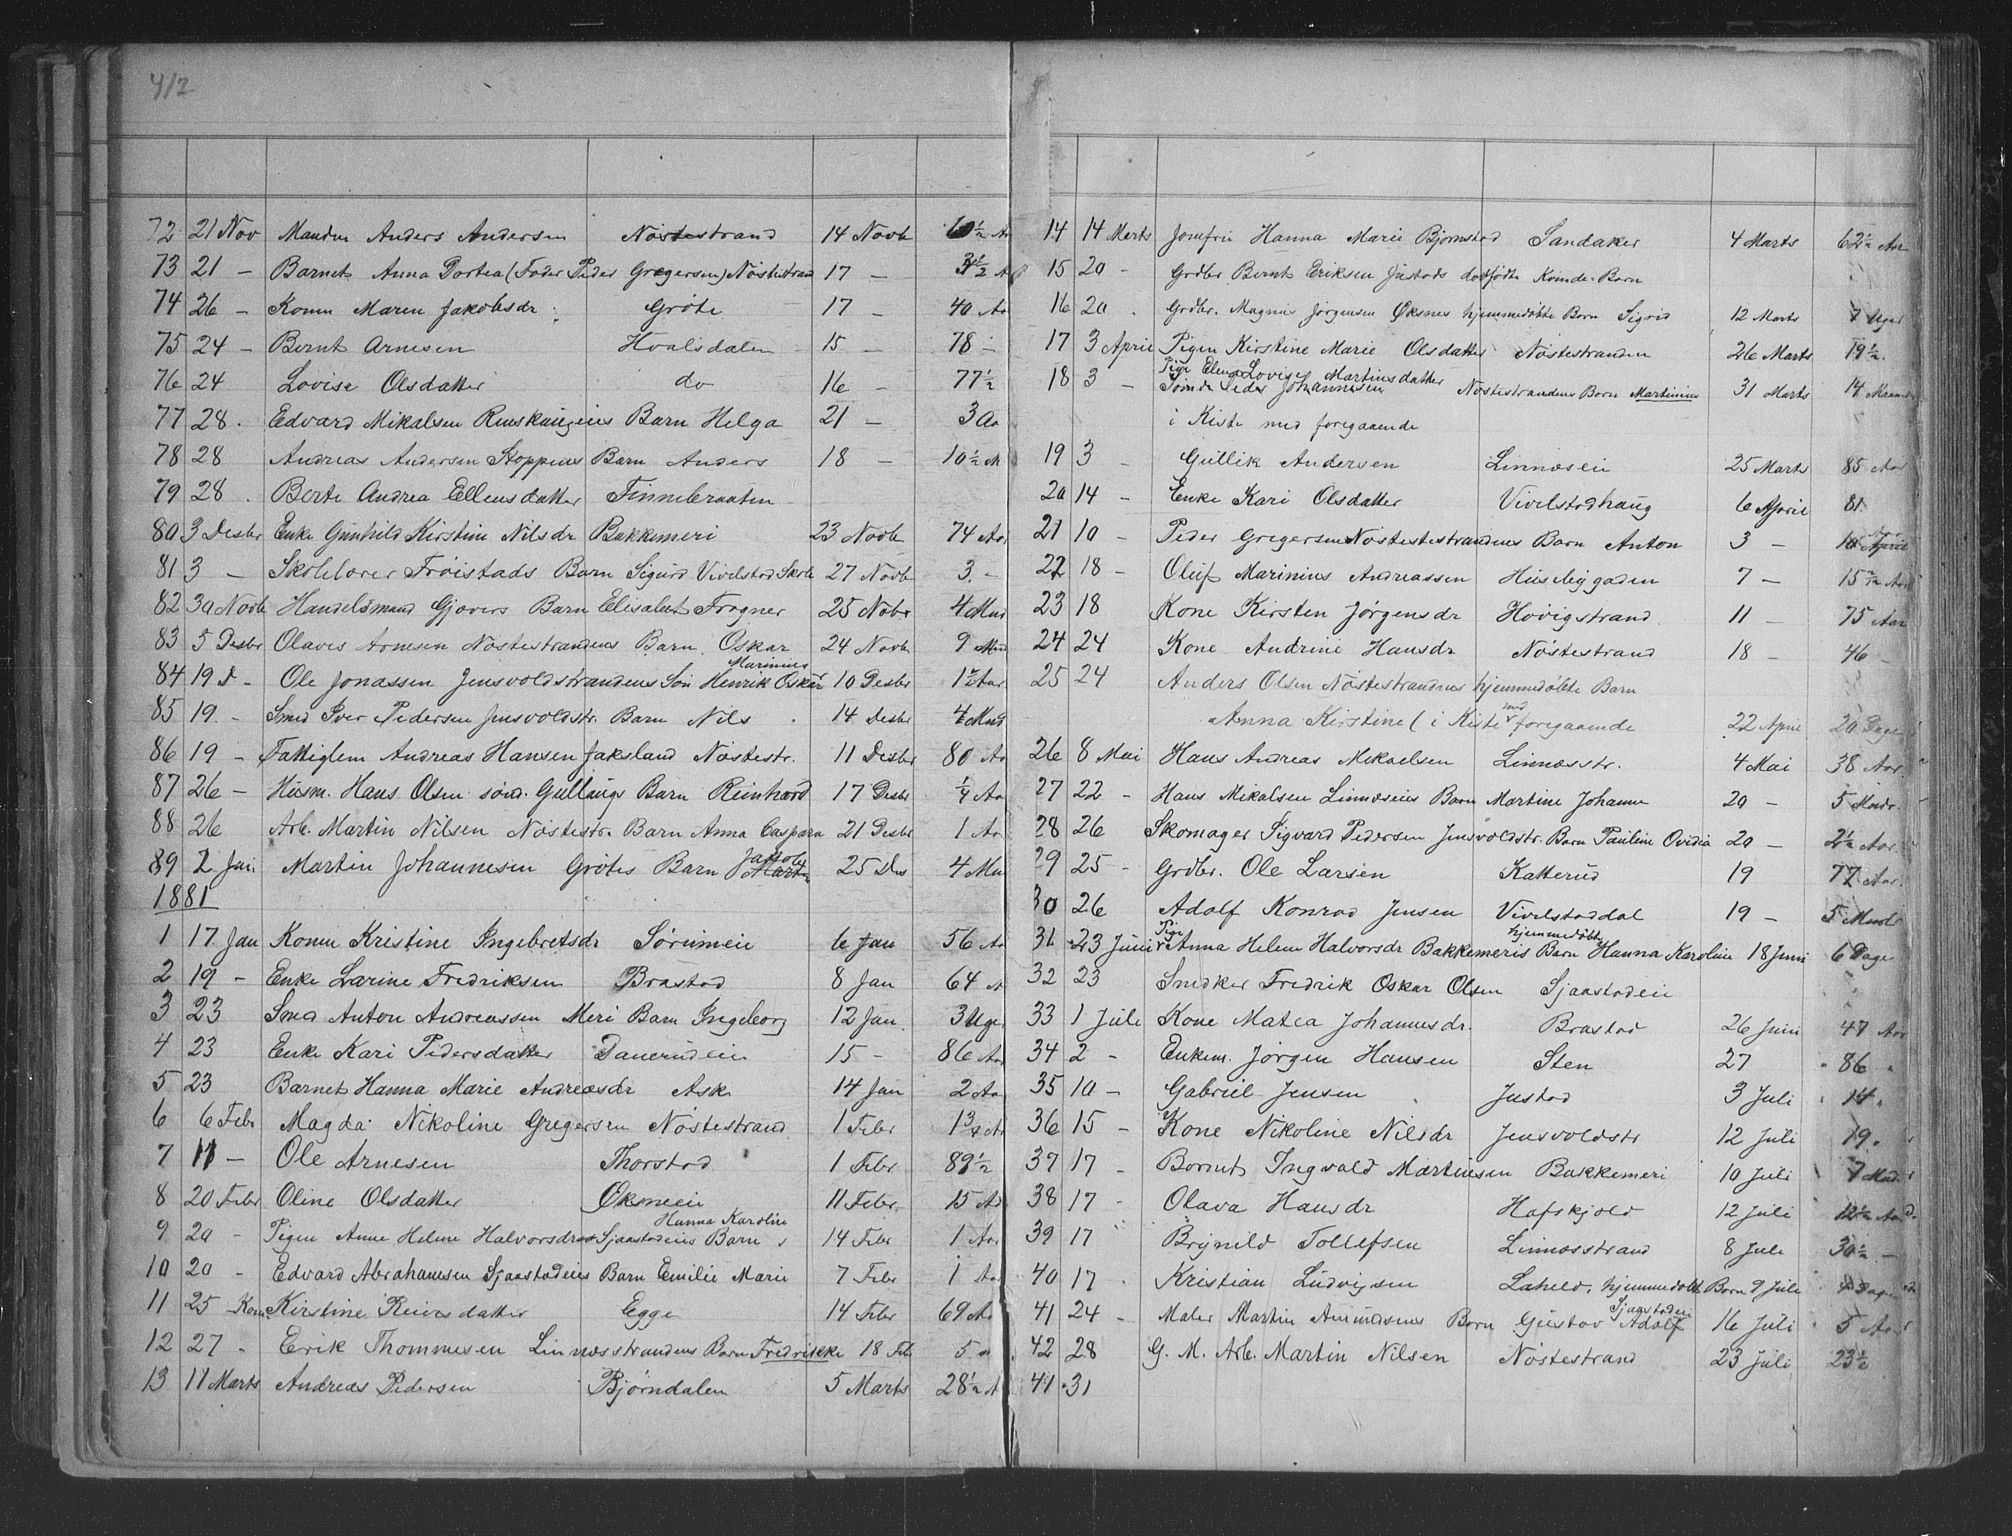 412
72 21 Nov Manden Anders Andersen Nöstestrand 14 Novb 60½ Aa
73 21 — Barnet Anna Dortea (Fader Peder Gregersen) Nöstestran 17 — 3½ A
74 26 — Konen Maren Jakobsdr Gröte 17 — 40 Aa
75 24 — Bernt Arnesen Hvalsdalen 15 — 78 —
76 24 Lovise Olsdatter do 16 — 77½
77 28. Edvard Mikalsen Renskaugeies Barn Helga 21 — 3 Aa
78 28 Andreas Andersen Stoppens Barn Anders 18 — 10½ M
79 28. Berte Andrea Ellensdatter Finnebraaten
80 3 Desbr Enke Gunhild Kirstine Nilsdr Bakkemeri 23 Novb 74 Aar
81 3 — Skolelærer Fröistads Barn Sigurd Vivelstad Skole 27 Novb 3. —
82 30 Novb Handelsmand Gjøvers Barn Elisabet Frogner 25 Nobr 4 Mnd
83 5 Desbr Olaves Arnesen Nöstestrandens Barn Oskar 24 Novb 9 Mnd
84 19 D — Ole Jonassen Jensvoldstrandens Sön Henrik Oskar Marinius 10 Desbr 1½ Aar
85 19. — Smed Iver Pedersen Jensvoldstr. Barn Nils 14 Desbr 4 Mnd
86 19 — Fattiglem Andreas Hansen Jaksland Nöstestr. 11 Desbr 80 Aa
87 26 — Husm. Hans Olsen sönd. Gullaugs Barn Reinhard 17 Desbr ¼ Aa
88 26 Arb. Martin Nilsen Nöstestr. Barn Anna Caspara 21 Desbr 1 Aa
89 2 Jan. Martin Johannesen Grötes Barn Jakob Martin 25 Des 4 Mn
1881
1 17 Jan Konen Kristine Ingebretsdr Sörumeie 6 Jan 56 Aa
2 19 — Enke Larine Fredriksen Brastad 8 Jan 64 A
3 23 Smed Anton Andreassen Meri Barn Ingeborg 12 Jan. 3 Uger
4 23 Enke Kari Pedersdatter Danerudeie 15 — 86 Aa
5 23 Barnet Hanna Marie Andreasdr Ask 14 Jan 2 Aa
6 6 Febr Magda Nikoline Gregersen Nöstestrand 1 Febr 1¾ A
7 11 — Ole Arnesen Thorstad 1 Febr 89½
8 20 Febr Oline Olsdatter Øksneeie 11 Febr. 15 Aa
9 20 — Pigen Anne Helene Halvorsdr Sjaastadeies Barn Hanna Karoline 14 Febr 1 Aar
10 20 — Edvard Abrahamsen Sjaastadeies Barn Emilie Marie 7 Febr 1 Aa
11 25 Kone Kirstine Reiersdatter Egge 14 Febr 69 Aa
12 27. Erik Thommesen Linnesstrandens Barn Fredrikke 18 Feb 5 a
13 11 Marts Andreas Pedersen Bjørndalen 5 Marts 28½ A
14 14 Marts Jomfru Hanna Marie Bjørnstad Sandaker 4 Marts 62½ Aar
15 20 — Grdbr Bernt Eriksen Justads dødfödte Kvinde-Barn
16 20. Grdbr. Magnus Jørgensen Øksnes hjemmedöbte Barn Sigrid 12 Marts 7 Uger
17 3 April Pigen Kirstine Marie Olsdatter Nöstestranden 26 Marts 19½.
18 3 — Pige Elena Lovise Martinsdatter
Peder Johannesen Nöstestrandens Barn Martinius 31 Marts 14
i Kiste med foregaaende
19 3 — Gullik Andersen Linnæseie 25 Marts 85 Aar
20 14 — Enke Kari Olsdatter Vivelstadhaug 6 April 81
21 10 — Peder Gregersen Nöstestestrandens Barn Anton 3 — 10
22 18 — Oluf Marinius Andreassen Husebygaden 7 — 15 Aar
23 18 Kone Kirsten Jörgensdr Hovigstrand 11 — 75 Aar
24 24 Kone Andrine Hansdr Nöstestrand 18 — 46 —
25 24 Anders Olsen Nöstestrandens hjemmedöbte Barn
Anna Kirstine (i Kiste med foregaaende 22 April 20 Dage
26 8 Mai Hans Andreas Mikaelsen Linnæsstr. 4 Mai 38 Aar.
27 22 — Hans Mikalsen Linnæseies Barn Martine Johanne 20 — 5 Mndr.
28 26 Skomager Sigvard Pedersen Jensvoldstr. Barn Pauline Ovidia 20 — 2½ Aar
29 25 — Grdbr. Ole Larsen Katterud 19 77 Aar.
30 26 Adolf Konrad Jensen Vivelstaddal 19 — 5 Mndr
31 23 Juni Pige Anna Helene Halvorsdr Bakkemeris hjemmedöbte Barn Hanna Karoline 18 Juni 6 Dage
32 23 Snedker Fredrik Oskar Olsen Sjaastadeie
33 1 Juli Kone Matea Johannesdr. Brastad 26 Juni 47 Aar
34 2 — Enkem. Jørgen Hansen Sten 27 86
35 10 — Gabriel Jensen Justad 3 Juli 14.
36 15 — Kone Nikoline Nilsdr Jensvoldstr 12 Juli 19.
37 17 — Barnet Ingvald Martinsen Bakkemeri 10 Juli 7 Mnd.
38 17 — Olava Hansdr Hafskjold 12 Juli 12½ Aar
39 17 Brynild Tollefsen Linnæsstrand 8 Juli 30½ —
40 17. Kristian Ludvigsen Laheld. hjemmedöbt Barn 9 Juli 4 Dage
41 24 — Maler Martin Amundsens Barn Gustav Adolf Sjaastadeie 16 Juli 5 Aar
42 28 G. M. Arb. Martin Nilsen Nöstestrand 23 Juli 23½
41 31